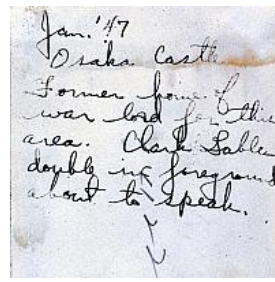 Jan. '47
Osaka Castle
Former home of
war lord for this
area. Clark Gable
double in foreground
about to speak.